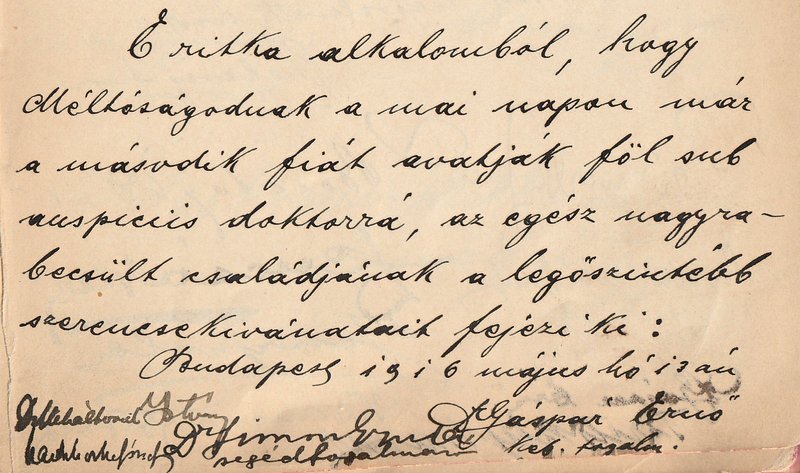 E ritka alkalomból, hogy
Méltóságodnak a mai napon már
a második fiát avatják föl sub
auspiciis doktorrá, az egész nagyra-
becsült családjának a legőszintébb
szerencsekivánatait fejezi ki:
Budapest 1916 május hó 13 án
István
Dr Simon
Gáspár Ernő